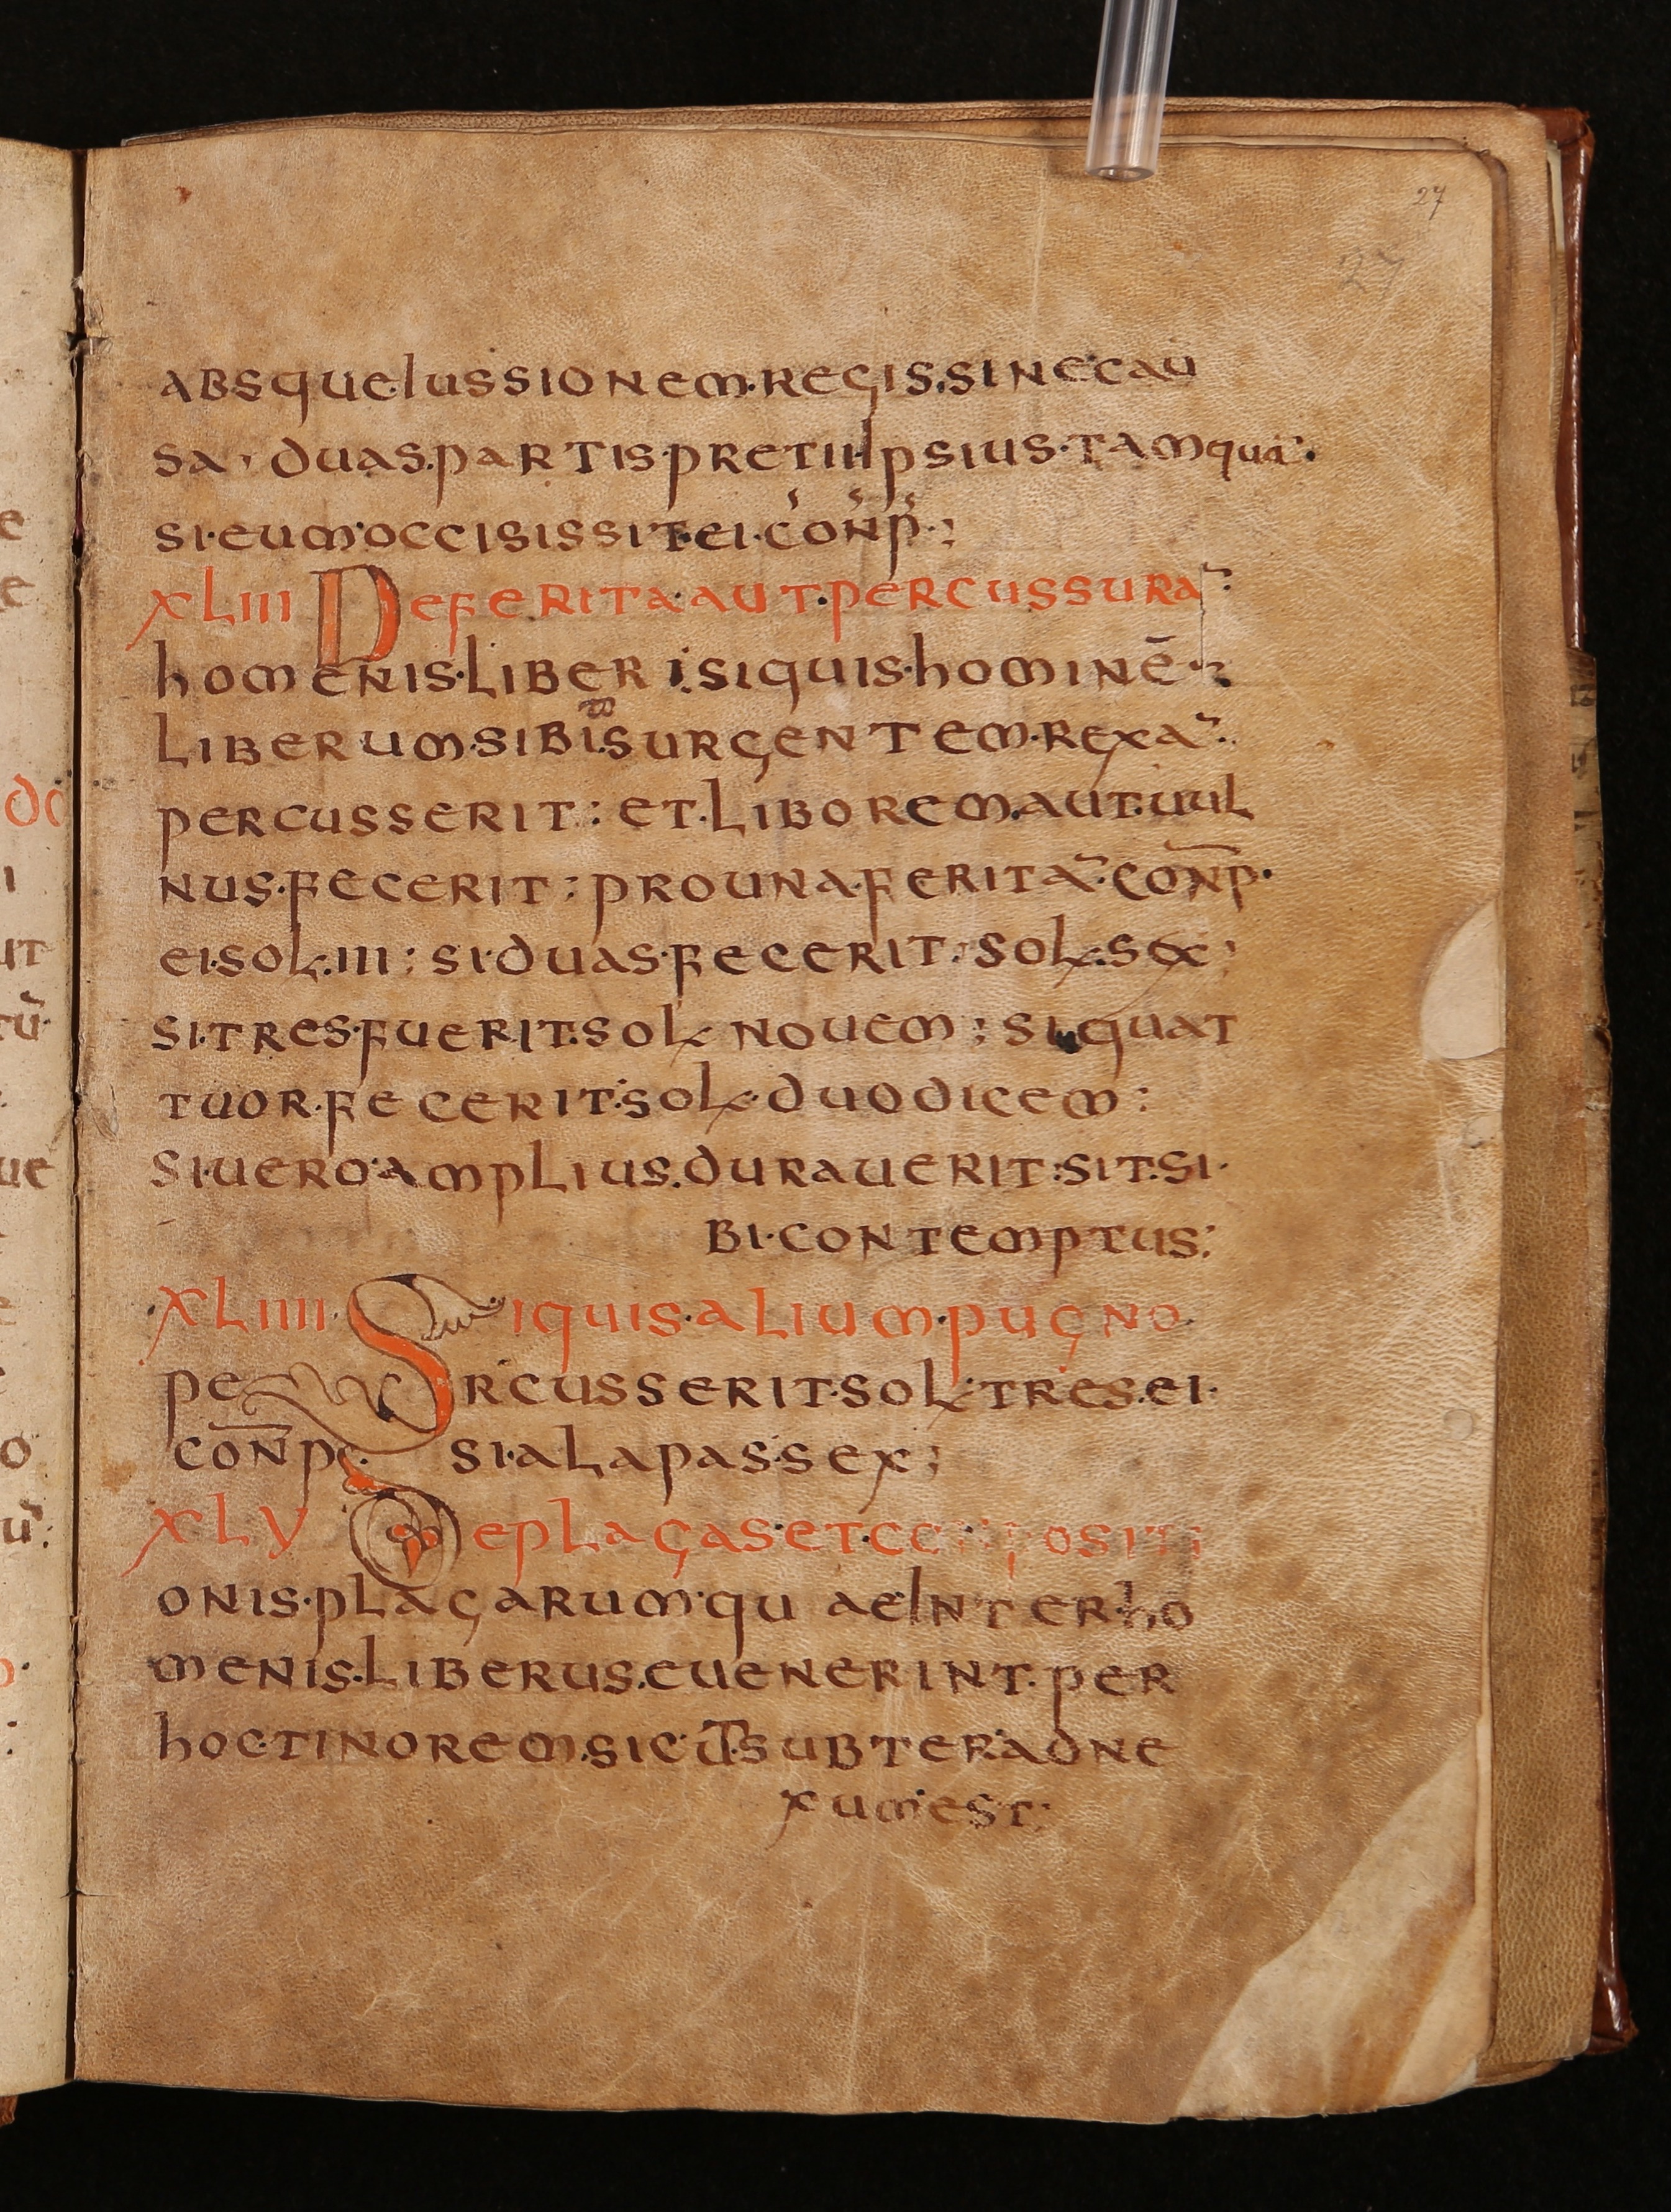 27
27
absque·iussionem·regis·sine·cau
sa· duas·partis·pretii ipsius·tamqua̅·
si·eum·occisissit·ei·con̅p̅·;
XLIII De ferita·aut·percussura̅·
homenis·liberi·siquis·hominē·
liberum·sibi·surgentem·rexa̅·
m
percusserit: et·liborem·aut·uul
nus·fecerit: pro una·ferita̅·con̅p·
ei·sol·III: si·duas·fecerit·sol·sex;
si·tres·fuerit·sol nouem; si·quat
tuor·fecerit·sol·duodicem:
si·uero·amplius·durauerit·sit·si·
bi·contemptus:
·XLIIII· Siquis·alium·pugno
percusserit·sol·tres·ei·
con̅p· si·alapas·sex;
XLV De plagas·et· ositi
onis·plagarum·quae inter·ho
menis·liberus·euenerint·per
hoc·tinorem·sicut·subter·adne
xum·est: